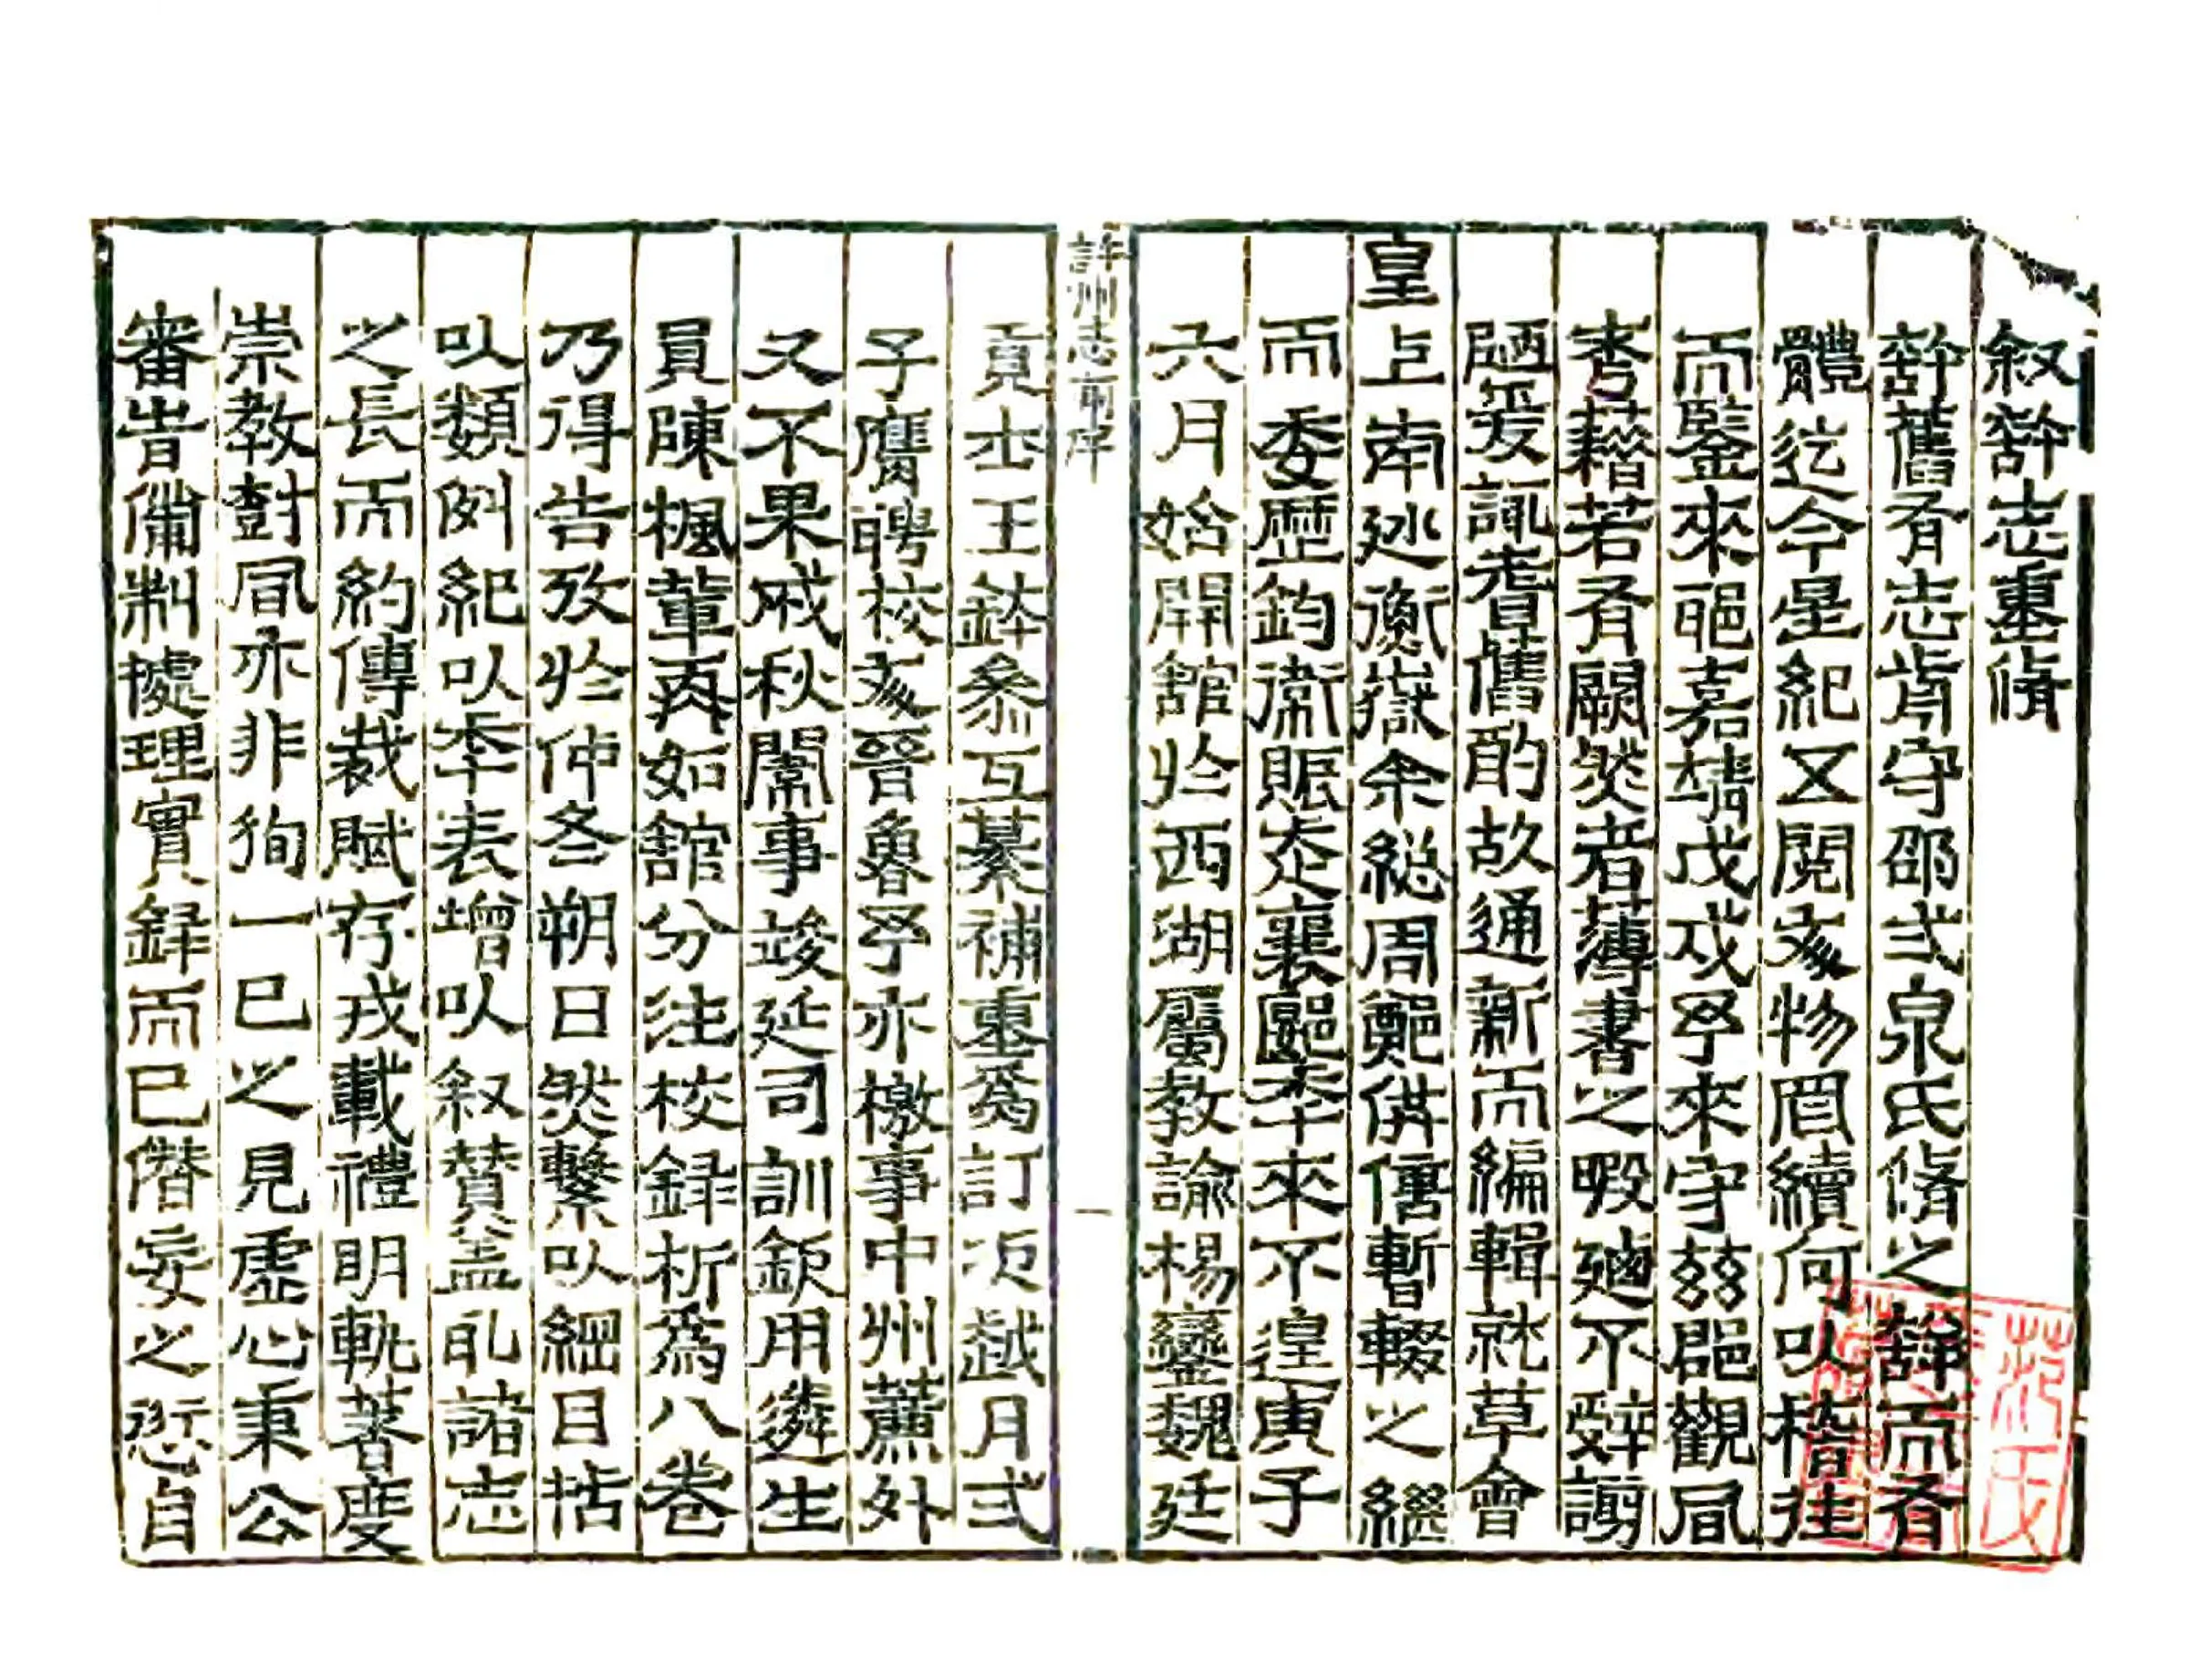 叙鄦志重脩
鄦舊有志前守邵弍泉氏脩之辭而有
體迄今星紀又閱亥物罔續何以稽往
而鑒來耶嘉靖戊戌予來守茲郡觀風
考藉若有闕然者薄書之暇迺不辭謭
陋爰諏耆舊酌故通新而編輯就草會
皇上南巡衡嶽余総周鄭供偫暫輟之繼
而委歷鈞衛賑走襄郾季來不遑寅子
六月始開館於西湖屬教諭楊鑾魏廷
許州志前序
一
貢士王鉢參互纂補重為訂次越月弍
子膺聘校亥晉魯予亦檄事中州薦外
又不果戒秋闈事竣延司訓欽用遴生
員陳楓輩再如館分注校録析為八卷
乃得告攷於仲冬朔日然繫以綱目括
以類例紀以季表增以叙賛盖乿諸志
之長而約傳裁賦存戎載禮明軌著度
崇教尌風亦非徇一己之見虛心秉公
審旹備制據理實録而已僭妄之愆自